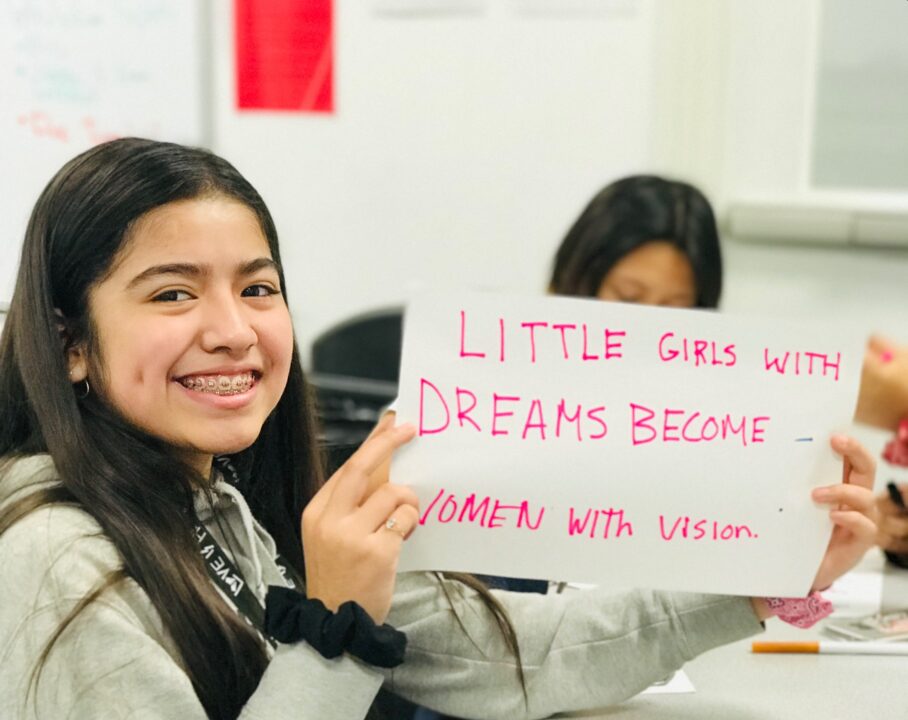 LITTLE GIRLS WITH
DREAMS BECOME
WOMEN WITH VISION.